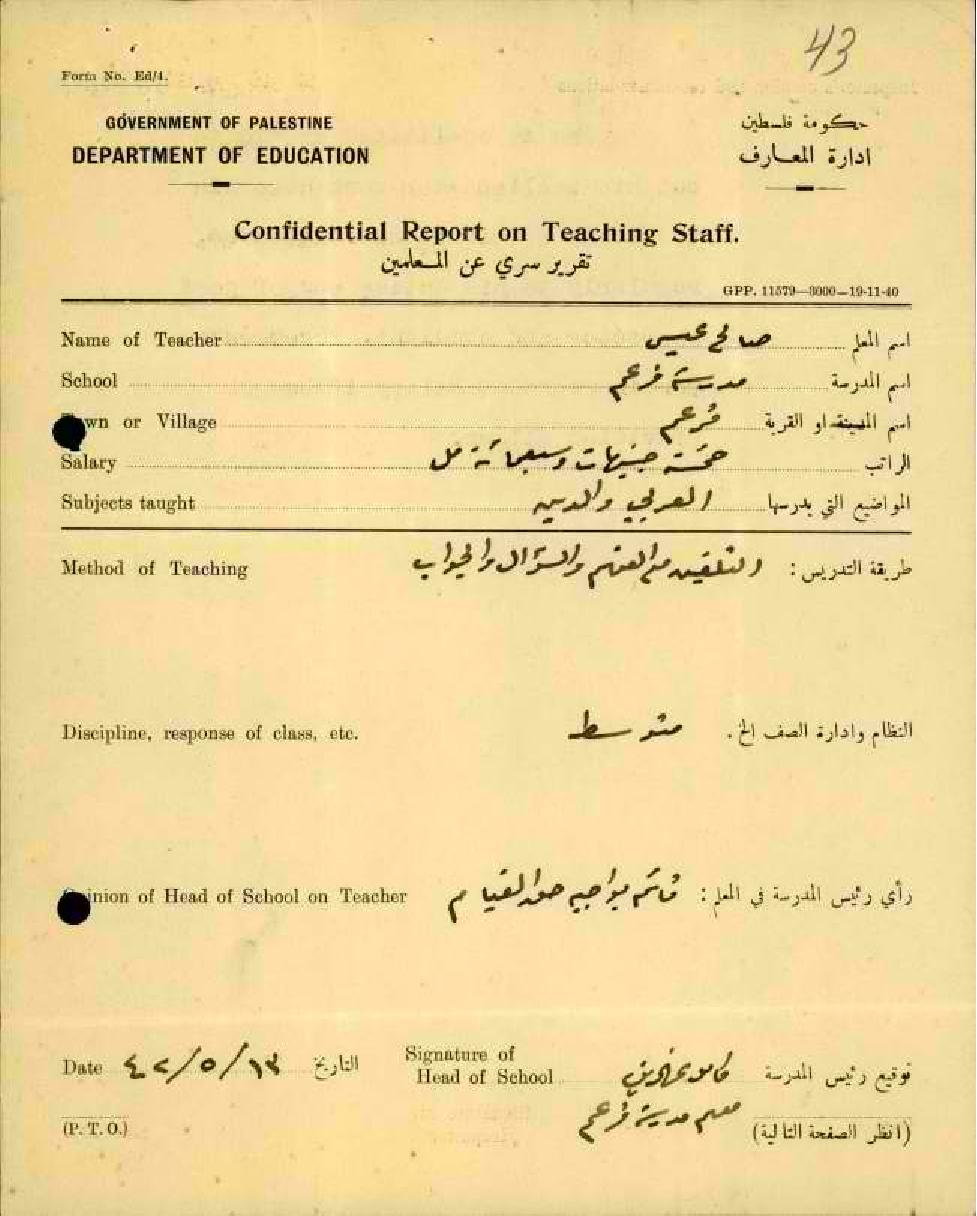 43
Form No. Ed/4.
GOVERNMENT OF PALESTINE
حكومة فلسطين
DEPARTMENT OF EDUCATION
ادارة المعارف
Confidential Report on Teaching Staff.
تقرير سري عن المعلمين
GPP. 11579—3000—19-11-40
Name of Teacher صالح عيسى اسم المعلم
School مدرسة فرعم اسم المدرسة
Town or Village فرعم اسم المدينة او القرية
Salary خمسة جنيهات وسبعمائة مل الراتب
Subjects taught العربي والدين المواضيع التي يدرسها
Method of Teaching التلقين مع الفهم والسؤال والجواب طريقة التدريس :
Discipline, response of class, etc. متوسط النظام وادارة الصف الخ .
Opinion of Head of School on Teacher قائم بواجبه حق القيام رأي رئيس المدرسة في المعلم :
Date ١٣/٥/٤٢ التاريخ Signature of Head of School كامل توقيع رئيس المدرسة
معلم مدرسة فرعم
(P. T. O.) (انظر الصفحة التالية)